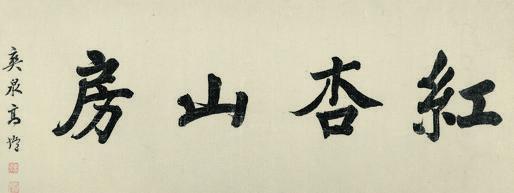 紅杏山房
爽泉高塏